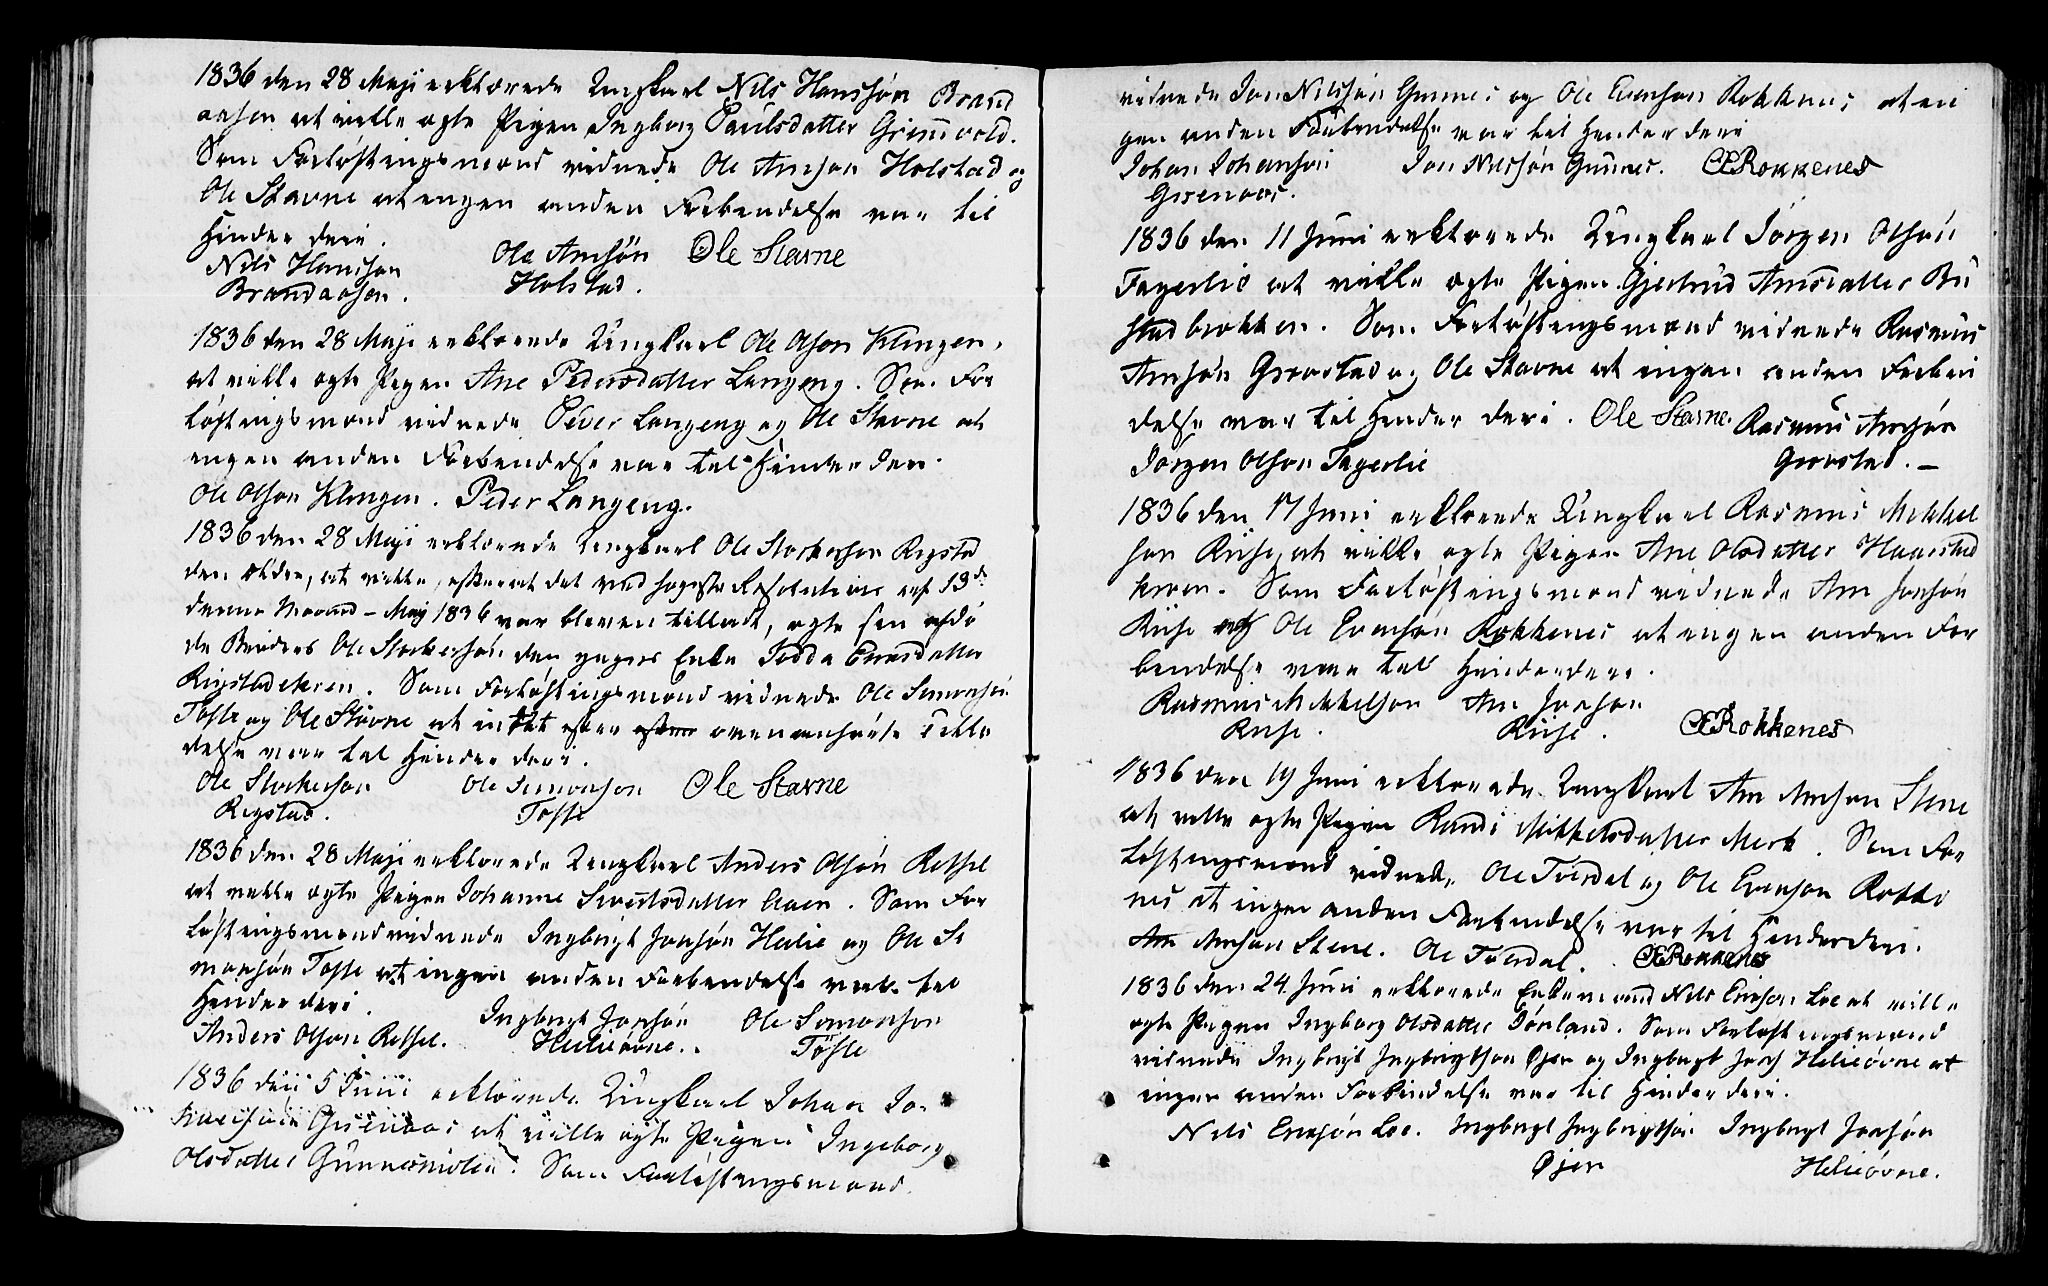 1836 den 28 Maji erklærede Ungkarl Nils Hansøn Brand
aasen at ville ægte Pigen Ingborg Paulsdatter Grimsvold.
Som Forløftningsmænd vidnede Ole Arnsøn Holstad og
Ole Stavne at ingen anden Forbindelse var til
Hinder deri.
Nils Hansøn Ole Arnsøn Ole Stavne
Brandaasen. Holstad.
1836 den 28 Maji erklærede Ungkarl Ole Olsøn Klingen,
at ville ægte Pigen Ane Pedersdatter Langeng. Som For
løftningsmænd vidnede Peder Langeng og Ole Stavne at
ingen anden Forbindelse var til Hinder deri.
Ole Olsøn Klingen. Peder Langeng.
1836 den 28 Maji erklærede Ungkarl Ole Storkersøn Rigstad
den ældre, at ville, efter at det ved høgeste Resolution af 13de
denne Maaned - Maj 1836 var bleven tilladt, ægte sin afdø
de Broders Ole Storkersøn den yngres Enke Dodda Evensdatter
Rigstadekren. Som Forløftningsmænd vidnede Ole Simonsøn
Tøfte og Ole Stavne at intet efter ovenanførte Tilla
delse var til Hinder deri.
Ole Storkersøn Ole Simonsøn Ole Stavne
Rigstad. Tøfte
1836 den 28 Maji erklærede Ungkarl Anders Olsøn
at ville ægte Pigen Johanne Sivertsdatter Aaen. Som For
løftningsmænd vidnede Ingbrigt Jonsøn og Ole Si
monsøn Tøfte at ingen anden Forbindelse var til
Hinder deri.
Anders Olsøn Ingbrigt Jonsøn Ole Simonsøn
Tøfte
1836 den 5 Juni erklærede Ungkarl Johan Jo
hansøn Grønaas at ville ægte Pigen Ingeborg
Olsdatter Gunneslien. Som Forløftningsmænd
vidnede Jon Nilsøn Gunnes og Ole Evensøn Rokkenes at in
gen anden Forbindelse var til Hinder deri
Johan Johansøn Jon Nilsøn Gunnes. OERokkenes
Grønaas.
1836 den 11 Juni erklærede Ungkarl Jørgen Olsøn
Fagerlie at ville ægte Pigen Gjertrud Arnsdatter Bu
stadbrokken. Som Forløftningsmænd vidnede Rasmus
Arnsøn Grøvstad og Ole Stavne at ingen anden Forbin
delse var til Hinder deri. Ole Stavne. Rasmus Arnsøn
Jørgen Olsøn Fagerlie Grøvstad. —
1836 den 17 Juni erklærede Ungkarl Rasmus Mikkel
søn Riise, at ville ægte Pigen Ane Olsdatter Haarstad
kroen. Som Forløftningsmænd vidnede Arn Jonsøn
Riise og Ole Evensøn Rokkenes at ingen anden For
bindelse var til Hinder deri.
Rasmus Mikkelsøn Arn Jonsøn
Riise. Riise. OERokkenes
1836 den 19 Juni erklærede Ungkarl Arn Arnsøn Stene
at ville ægte Pigen Randi Mikkelsdatter Merk. Som For
løftningsmænd vidnede Ole Tørdal og Ole Evensøn Rokke
nes at ingen anden Forbindelse var til Hinder deri.
Arn Arnsøn Stene. Ole Tørdal. OERokkenes
1836 den 24 Juni erklærede Enkemand Nils Evensøn Loe at ville
ægte Pigen Ingborg Olsdatter Dørland. Som Forløftningsmænd
vidnede Ingbrigt Ingbrigtsøn Øien og Ingbrigt Jons Helieøvne at
ingen anden Forbindelse var til Hinder deri.
Nils Evensøn Loe. Ingbrigt Ingbrigtsøn Ingbrigt Jonsøn
Øien Helieøvne.